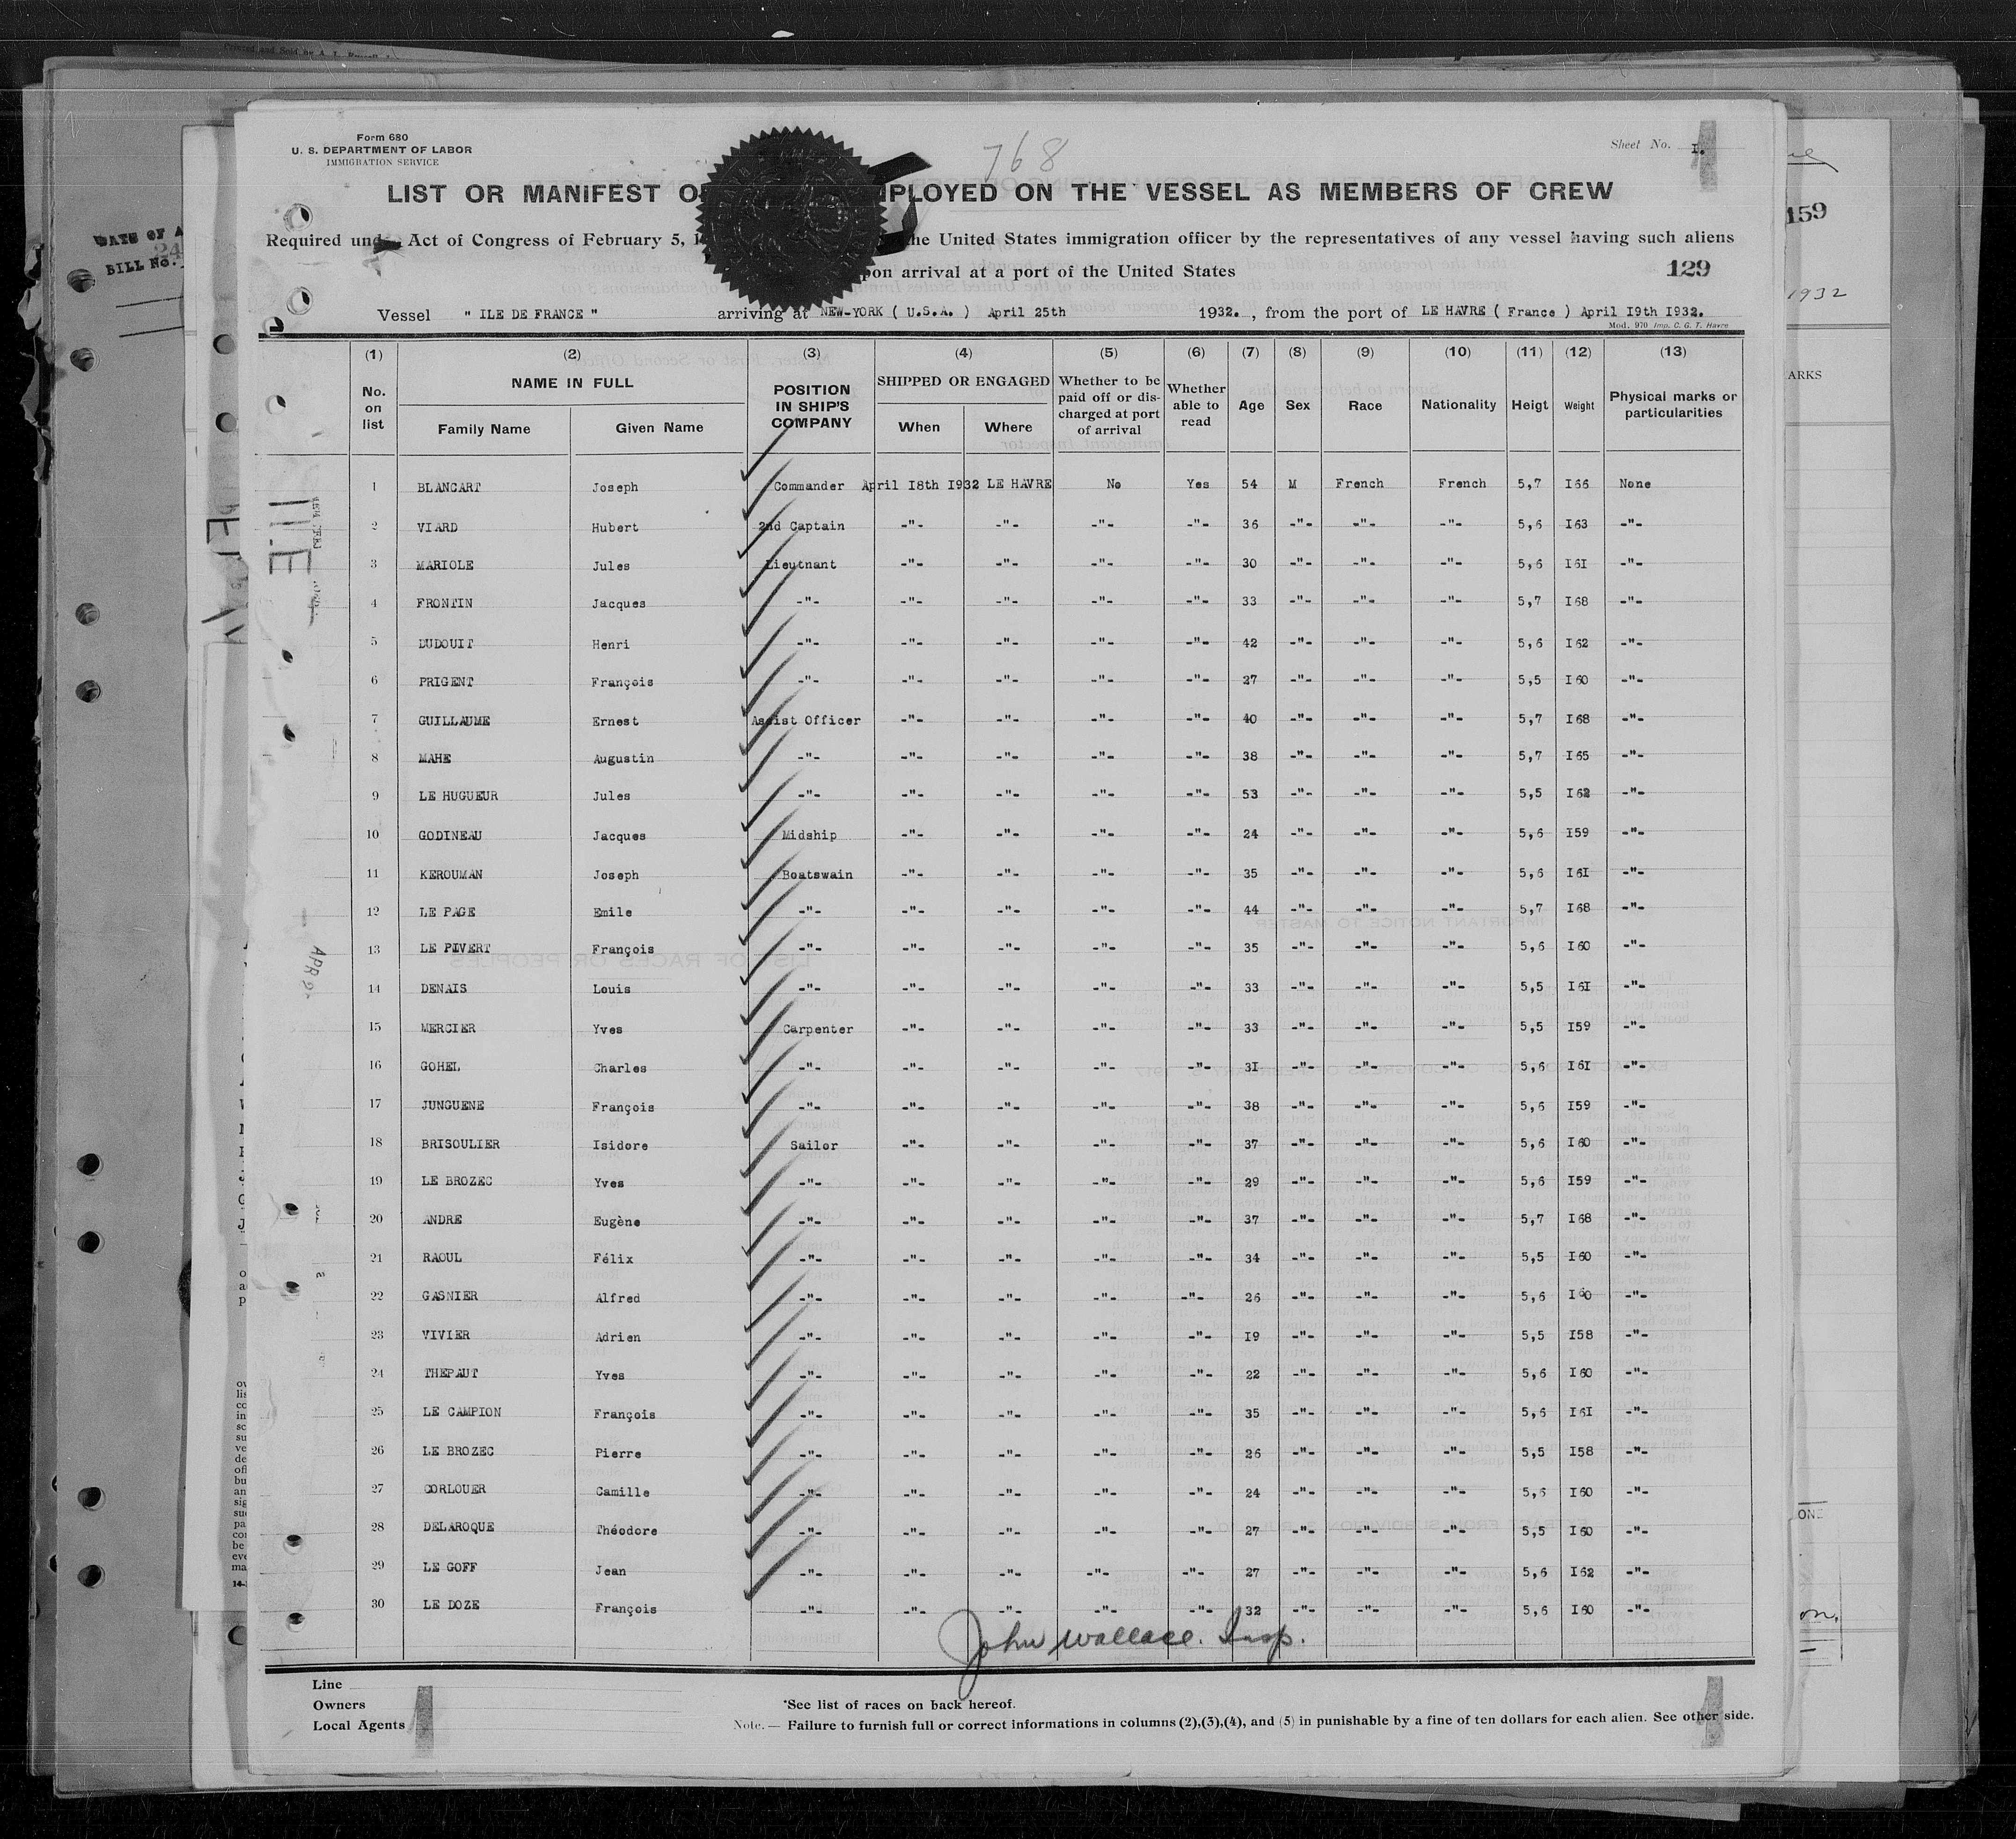 Form 680
U. S. DEPARTMENT OF LABOR
IMMIGRATION SERVICE
768
Sheet No. I.
LIST OR MANIFEST OF EMPLOYED ON THE VESSEL AS MEMBERS OF CREW
Required under Act of Congress of February 5, the United States immigration officer by the representatives of any vessel having such aliens
upon arrival at a port of the United States
129
Vessel " ILE DE FRANCE " arriving at NEW-YORK ( U.S.A. ) April 25th 1932. , from the port of LE HAVRE ( France ) April I9th I932.
Mod. 970 Imp. C. G. T. Havre
(1) (2) (3) (4) (5) (6) (7) (8) (9) (10) (11) (12) (13)
No. on list NAME IN FULL Family Name Given Name POSITION IN SHIP'S COMPANY SHIPPED OR ENGAGED When Where Whether to be paid off or discharged at port of arrival Whether able to read Age Sex Race Nationality Heigt Weight Physical marks or particularities
1 BLANCART Joseph Commander April I8th I932 LE HAVRE No Yes 54 M French French 5,7 I66 None
2 VIARD Hubert 2nd Captain -"- -"- -"- -"- 36 -"- -"- -"- 5,6 I63 -"-
3 MARIOLE Jules Lieutnant -"- -"- -"- -"- 30 -"- -"- -"- 5,6 I6I -"-
4 FRONTIN Jacques -"- -"- -"- -"- -"- 33 -"- -"- -"- 5,7 I68 -"-
5 DUDOUIT Henri -"- -"- -"- -"- -"- 42 -"- -"- -"- 5,6 I62 -"-
6 PRIGENT François -"- -"- -"- -"- -"- 27 -"- -"- -"- 5,5 I60 -"-
7 GUILLAUME Ernest Assist Officer -"- -"- -"- -"- 40 -"- -"- -"- 5,7 I68 -"-
8 MAHE Augustin -"- -"- -"- -"- -"- 38 -"- -"- -"- 5,7 I65 -"-
9 LE HUGUEUR Jules -"- -"- -"- -"- -"- 53 -"- -"- -"- 5,5 I62 -"-
10 GODINEAU Jacques Midship -"- -"- -"- -"- 24 -"- -"- -"- 5,6 I59 -"-
11 KEROUMAN Joseph Boatswain -"- -"- -"- -"- 35 -"- -"- -"- 5,6 I6I -"-
12 LE PAGE Emile -"- -"- -"- -"- -"- 44 -"- -"- -"- 5,7 I68 -"-
13 LE PIVERT François -"- -"- -"- -"- -"- 35 -"- -"- -"- 5,6 I60 -"-
14 DENAIS Louis -"- -"- -"- -"- -"- 33 -"- -"- -"- 5,5 I6I -"-
15 MERCIER Yves Carpenter -"- -"- -"- -"- 33 -"- -"- -"- 5,5 I59 -"-
16 GOHEL Charles -"- -"- -"- -"- -"- 3I -"- -"- -"- 5,6 I6I -"-
17 JUNGUENE François -"- -"- -"- -"- -"- 38 -"- -"- -"- 5,6 I59 -"-
18 BRISOULIER Isidore Sailor -"- -"- -"- -"- 37 -"- -"- -"- 5,6 I60 -"-
19 LE BROZEC Yves -"- -"- -"- -"- -"- 29 -"- -"- -"- 5,6 I59 -"-
20 ANDRE Eugène -"- -"- -"- -"- -"- 37 -"- -"- -"- 5,7 I68 -"-
21 RAOUL Félix -"- -"- -"- -"- -"- 34 -"- -"- -"- 5,5 I60 -"-
22 GASNIER Alfred -"- -"- -"- -"- -"- 26 -"- -"- -"- 5,6 I60 -"-
23 VIVIER Adrien -"- -"- -"- -"- -"- I9 -"- -"- -"- 5,5 I58 -"-
24 THEPAUT Yves -"- -"- -"- -"- -"- 22 -"- -"- -"- 5,6 I60 -"-
25 LE CAMPION François -"- -"- -"- -"- -"- 35 -"- -"- -"- 5,6 I6I -"-
26 LE BROZEC Pierre -"- -"- -"- -"- -"- 26 -"- -"- -"- 5,5 I58 -"-
27 CORLOUER Camille -"- -"- -"- -"- -"- 24 -"- -"- -"- 5,6 I60 -"-
28 DELAROQUE Théodore -"- -"- -"- -"- -"- 27 -"- -"- -"- 5,5 I60 -"-
29 LE GOFF Jean -"- -"- -"- -"- -"- 27 -"- -"- -"- 5,6 I62 -"-
30 LE DOZE François -"- -"- -"- -"- -"- 32 -"- -"- -"- 5,6 I60 -"-
John Wallace. Insp.
Line
Owners
Local Agents
*See list of races on back hereof.
Note. — Failure to furnish full or correct informations in columns (2),(3),(4), and (5) in punishable by a fine of ten dollars for each alien. See other side.
DATE OF A
BILL No.
159
1932
ARKS
APR 2